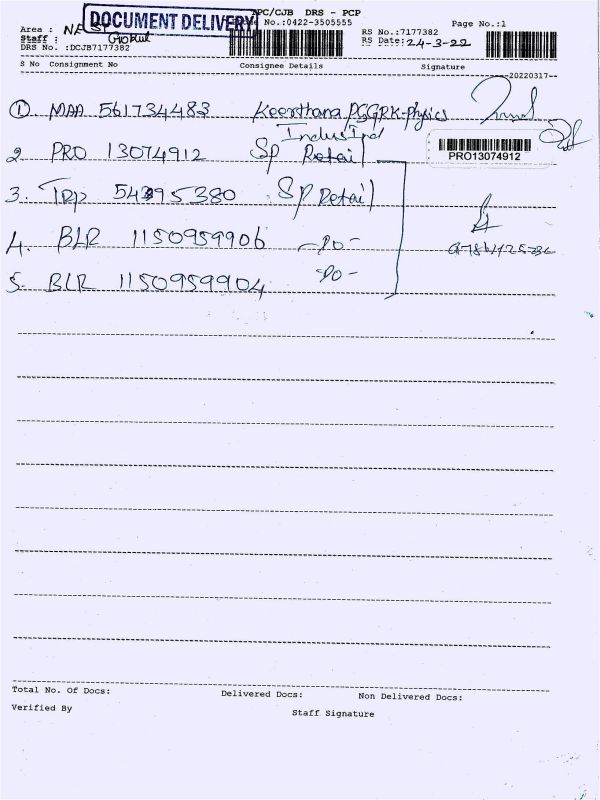 DOCUMENT DELIVERY
PC/CJB DRS - PCP
Page No.:1
No.:0422-3505555
RS No.:7177382
Area : NE ST
Staff : Gokul
RS Date: 24-3-22
DRS No. :DCJB7177382
S No Consignment No Consignee Details Signature
20220317
1 MAA 561734483 Keerthana PSGRK-Physics
2 PRO 13074912 SP Industrial Retail
PRO13074912
3. TRP 54395380 SP Retail
4. BLR 1150959906 -DO-
5. BLR 1150959904 -DO-
Total No. Of Docs: Delivered Docs: Non Delivered Docs:
Verified By Staff Signature